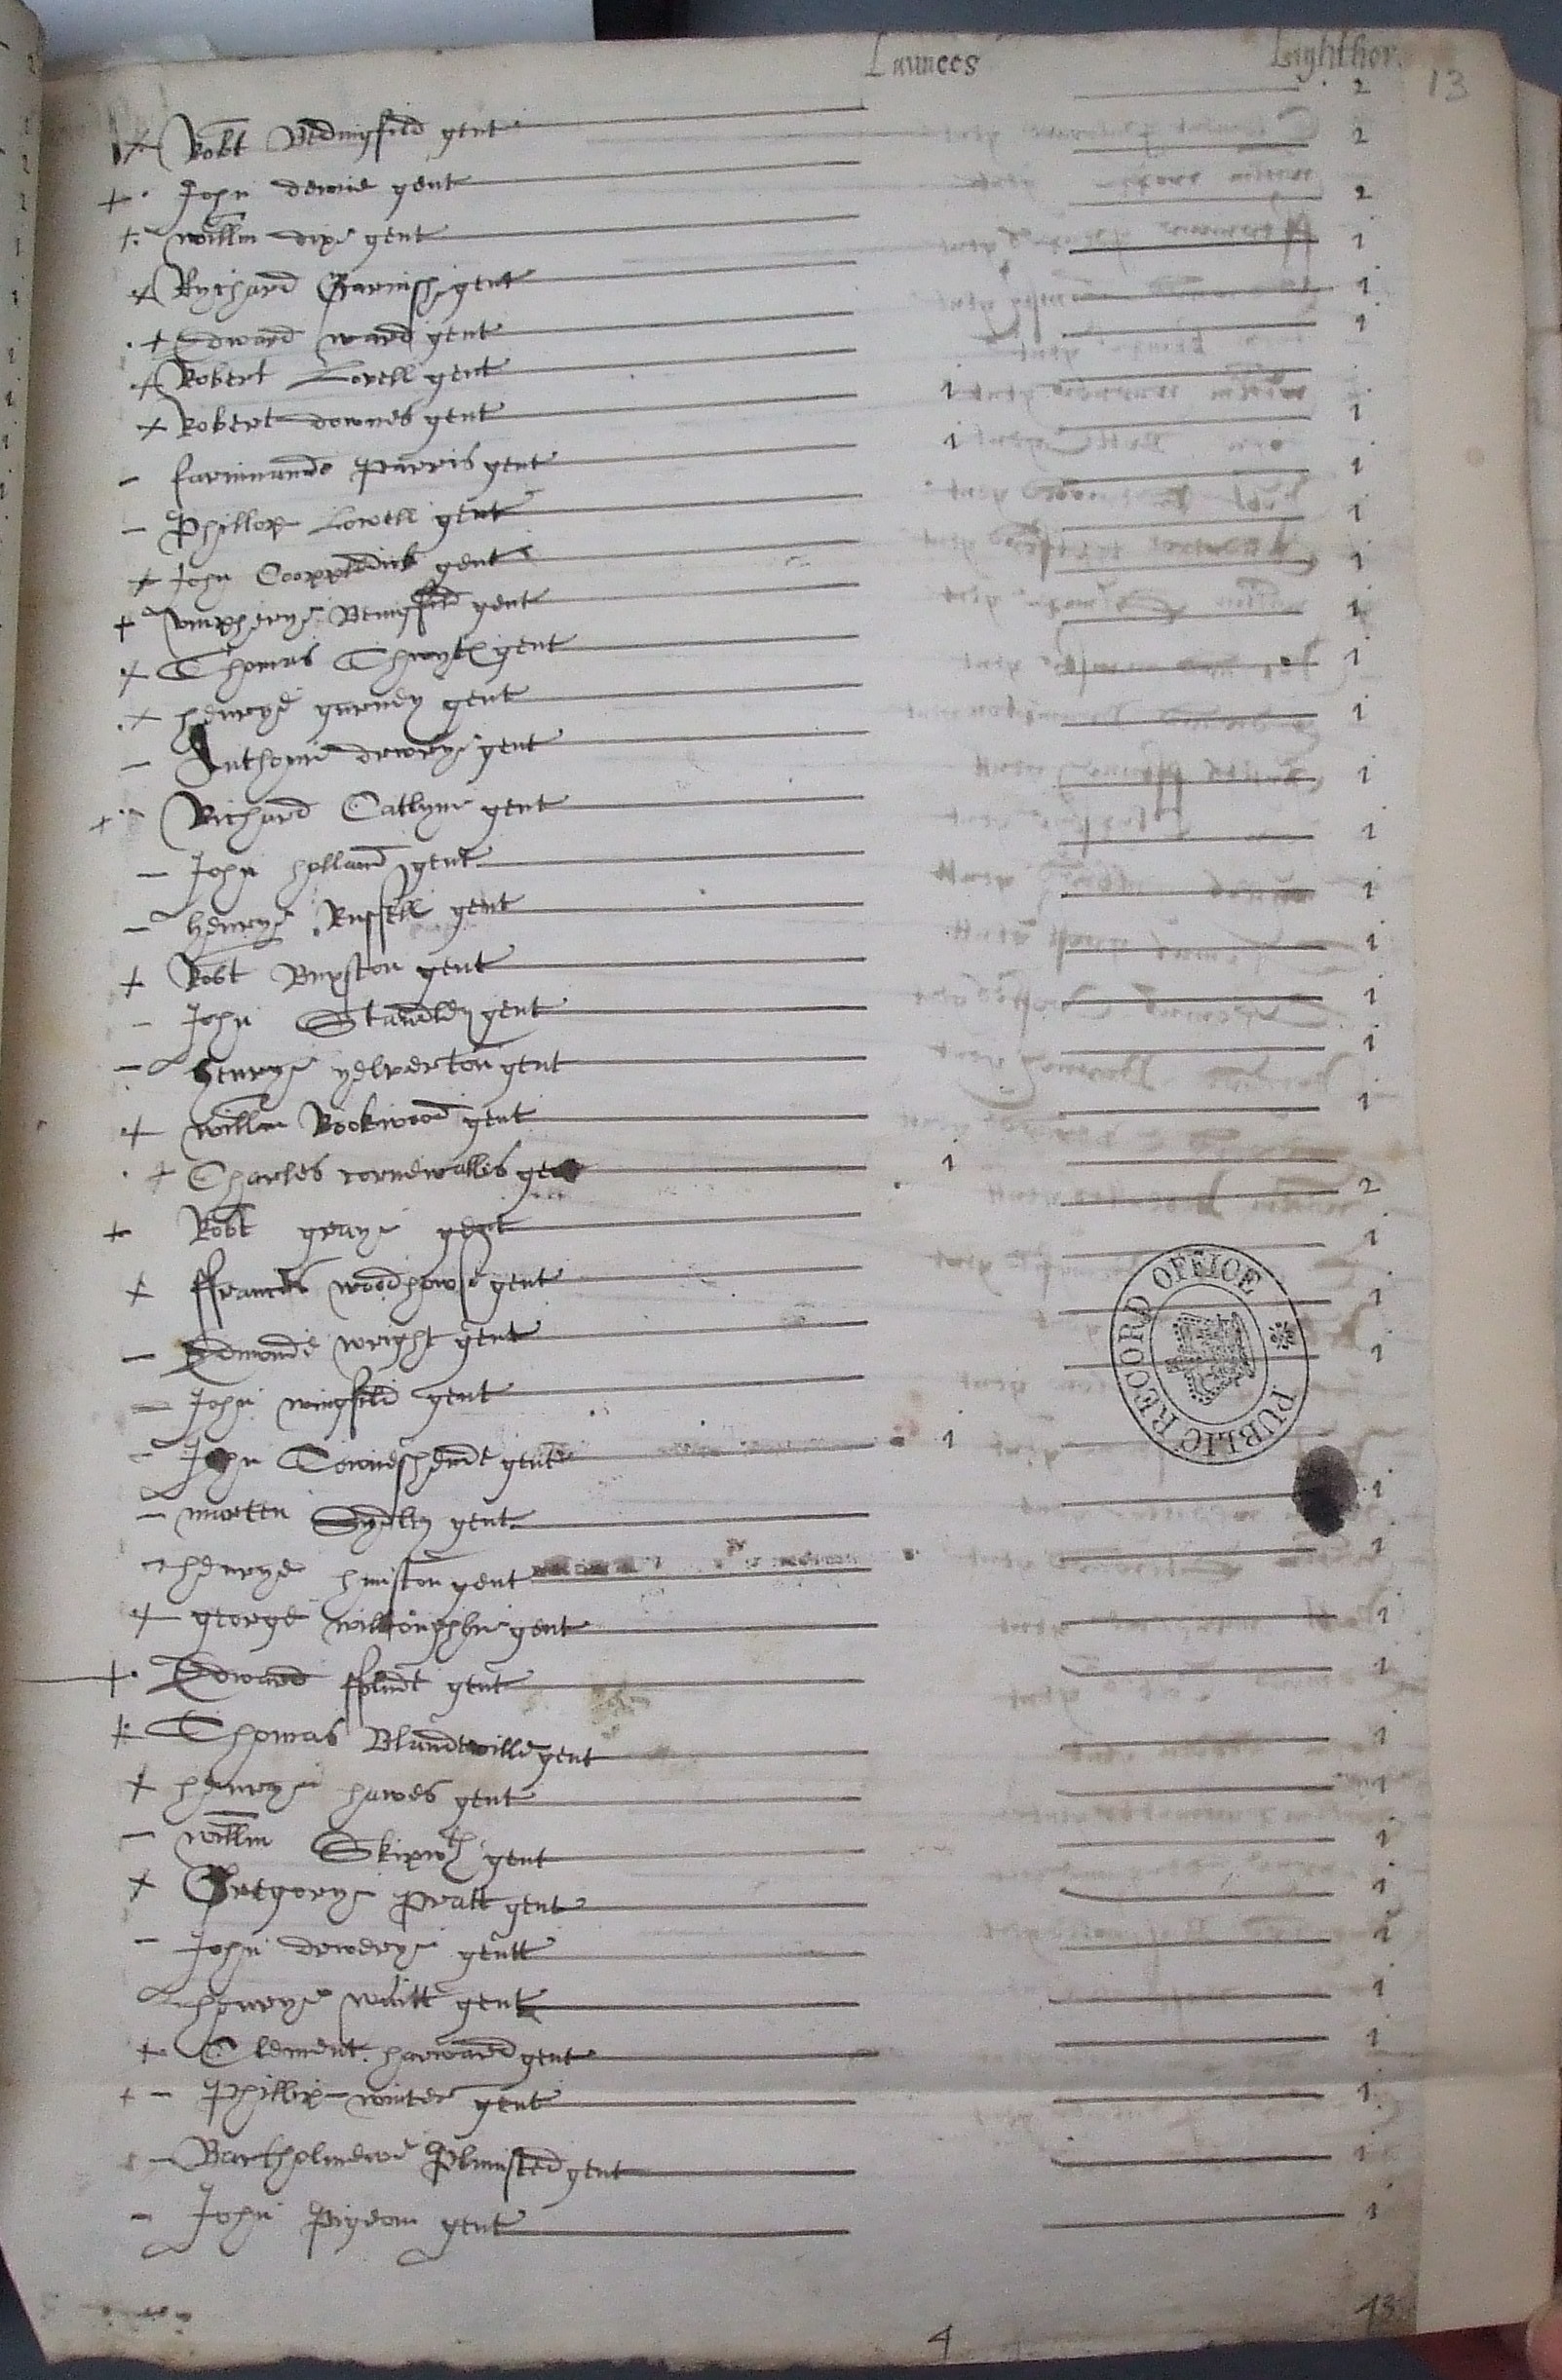 Launces Lighthor. 13
+ Robt Bedingfild gent 2
+ John dennie gent 2
+ willm dixe gent 2
+ Rychard Garnish gent 1
+ Edward ward gent 1
+ Robert Lovell gent 1
+ Robert downes gent 1
- farininando Parris gent 1 1
- Phillop Lowell gent 1
+ John Copples gent 1
+ vmphrye Benigfild gent 1
+ Thomas Thwyth gent 1
+ henrye gurney gent 1
- Anthonie drwrye gent 1
+ - Richard Catlyne gent 1
- John holland gent 1
- henrye Russell gent 1
+ Robt Buxston gent 1
- John Standley gent 1
- henrye yelverton gent 1
+ willm Rookwood gent 1
+ Charles cornewalles gent 1
+ Robt graye gent 2
+ ffrances woodhowse gent 1
- Edmonde wright gent 1
- John wingfild gent 1
- John Towneshende gent 1
- marten Sydley gent 1
- henrye hunston gent 1
+ george willoughbie gent 1
+ Edward fflindt gent 1
+ Thomas Blandeville gent 1
+ henrye hawes gent 1
- willm Skipwth gent 1
+ Gregorye Pratt gent 1
- John drwerye gentt 1
- henrye waitt gent 1
+ Clement harward gent 1
+ - Phillip winter gent 1
- Bartholmewe Plumsted gent 1
- John Pigeon gent 1
PUBLIC RECORD OFFICE
4